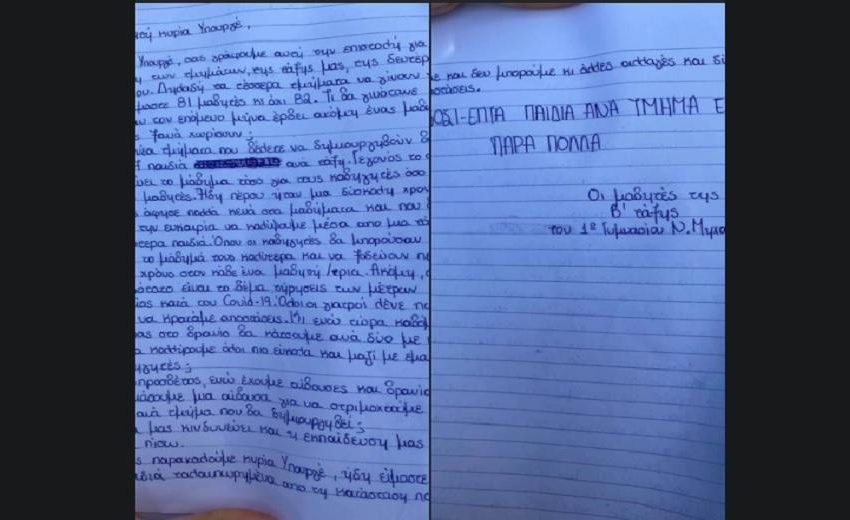 κυρία Υπουργέ,
Υπουργέ, σας γράφουμε αυτή την επιστολή για
των τμημάτων, της τάξης μας, της δευτέρ
ου. Δηλαδή τα τέσσερα τμήματα να γίνουν
81 μαθητές κι όχι 82. Τι θα γινότανε
αν τον επόμενο μήνα έρθει ακόμη ένας μαθη
ξανά χωρίσουν;
νέα τμήματα που θέλετε να δημιουργηθούν θ
7 παιδιά ανά τάξη. Γεγονός το ο
νει το μάθημα τόσο για τους καθηγητές όσο
μαθητές. Ήδη πέρσι ήταν μια δύσκολη χρον
άφησε πολλά κενά στα μαθήματα και που
την ευκαιρία να καλύψαμε μέσα απο μια τά
τερα παιδιά. Όπου οι καθηγητές θα μπορούσαν
το μάθημά τους καλύτερα και να ξοδεύουν πε
χρόνο στον κάθε ένα μαθητή/τρια. Ακόμη, σ
είναι το θέμα τήρησης των μέτρων
ίας κατά του Covid-19. Όλοι οι γιατροί λένε πω
να κρατάμε αποστάσεις. Κι ενώ τώρα
στο θρανίο θα κάτσουμε ανά δύο με
κολλήσουμε όλοι πιο εύκολα και μαζί με εμα
ηγητές;
προσθέτως, ενώ έχουμε αίθουσες και θρανία
μια αίθουσα για να στριμωχτούμε
τμήμα που θα δημιουργηθεί;
μας κινδυνεύει και η εκπαίδευση μας
πίσω.
ς παρακαλούμε κυρία Υπουργέ, ήδη είμαστε
ιδιά ταλαιπωρημένα από τη κατάσταση
ε και δεν μπορούμε κι άλλες αλλαγές και δι
στάσεις.
ΟΣΙ-ΕΠΤΑ ΠΑΙΔΙΑ ΑΝΑ ΤΜΗΜΑ Ε
ΠΑΡΑ ΠΟΛΛΑ
Οι μαθητές της
Β' τάξης
του 1ου Γυμνασίου Ν. Μηχα